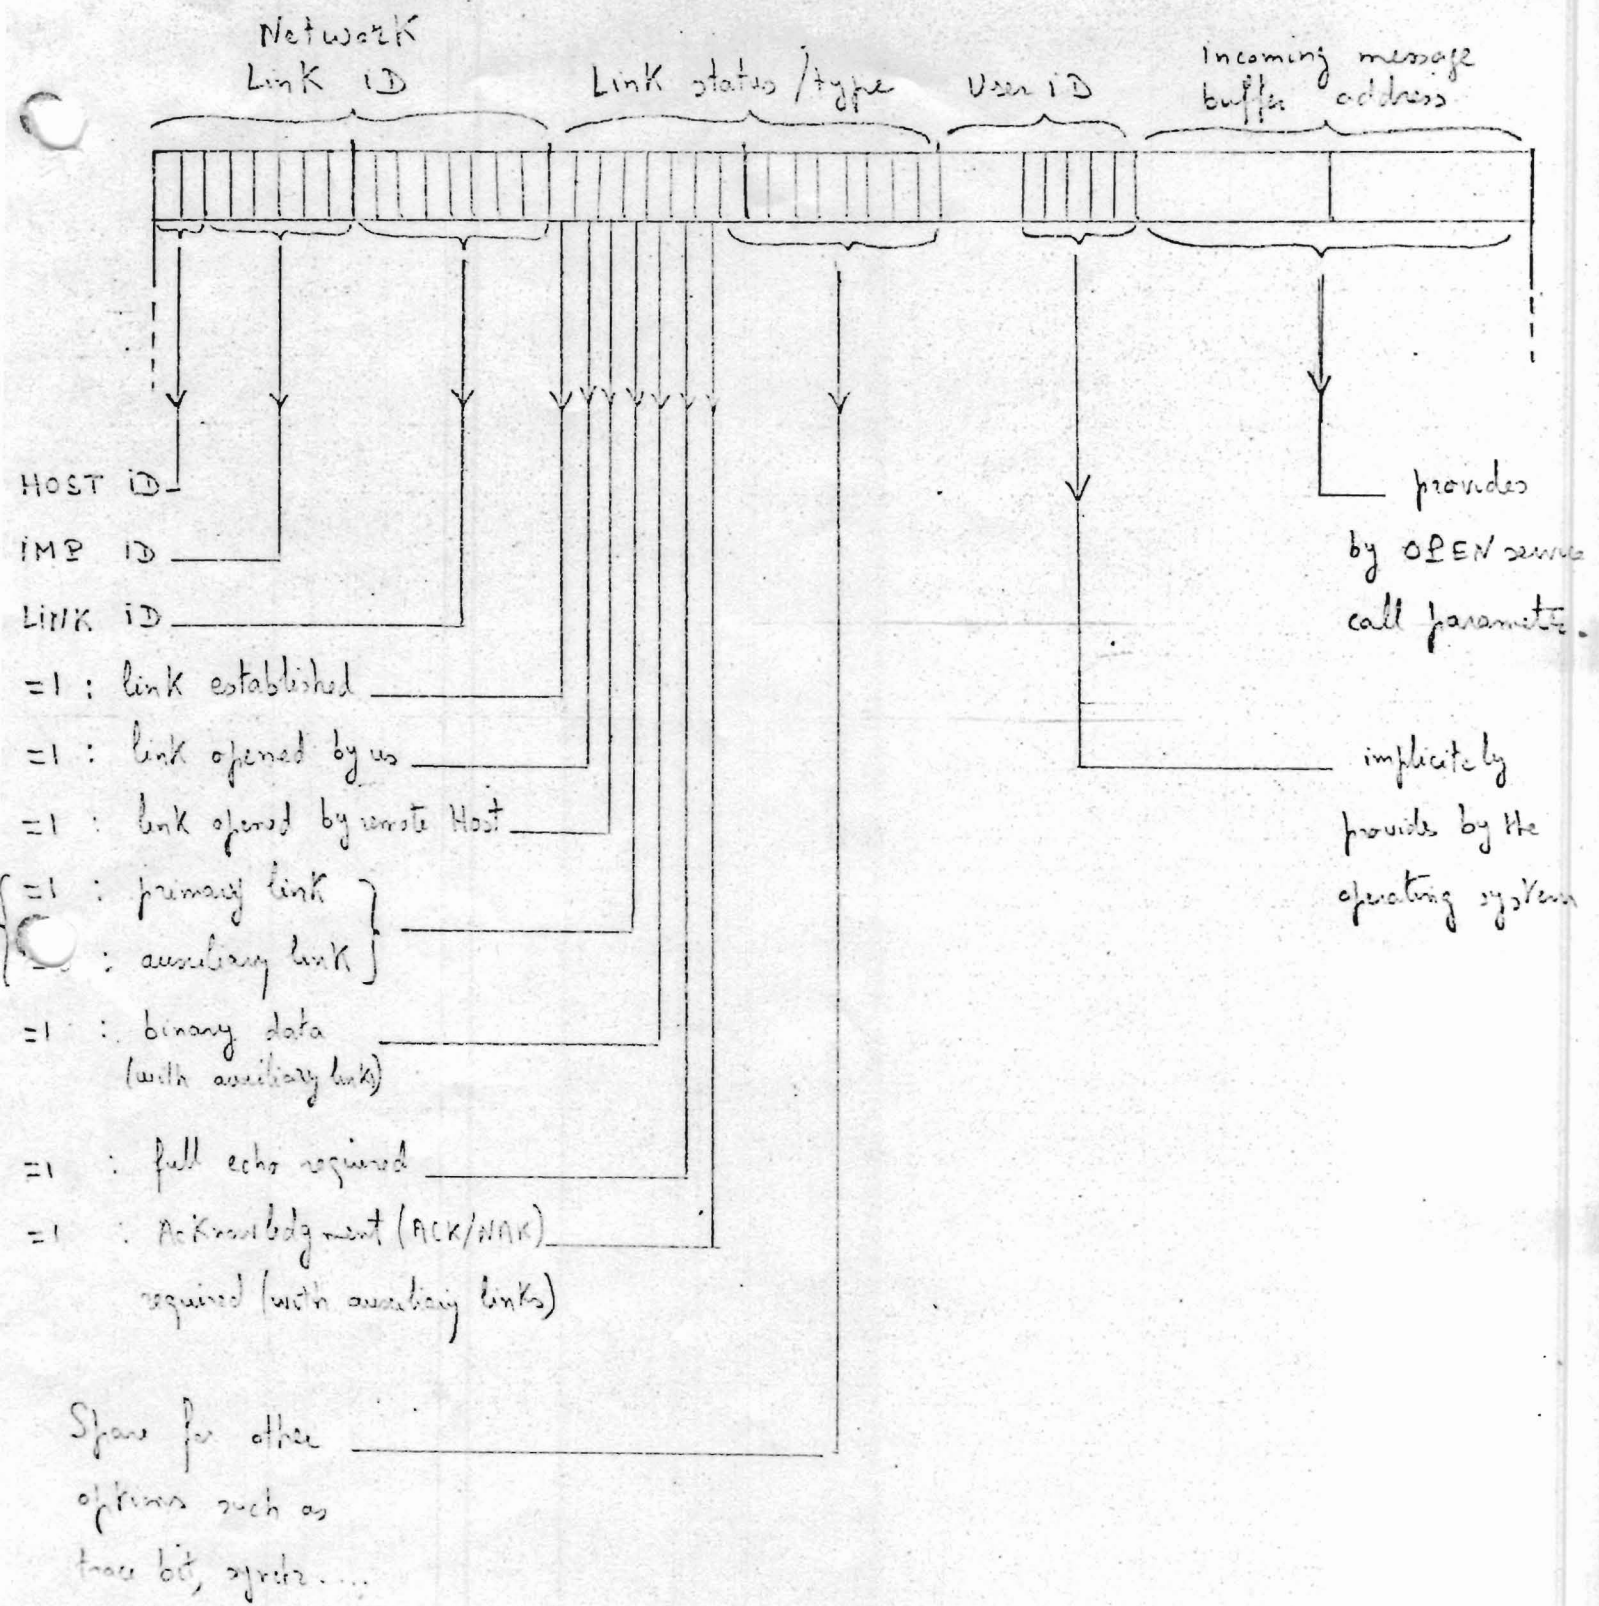 Network
Link iD
Link status/type
User iD
Incoming message
buffer address
HOST iD
iMP iD
LiNK iD
=1 : link established
=1 : link opened by us
=1 : link opened by remote Host
=1 : primary link
: auxiliary link
=1 : binary data
(with auxiliary links)
=1 : full echo required
=1 : Acknowledgment (ACK/NAK)
required (with auxiliary links)
Spare for other
options such as
trace bit,
provides
by OPEN service
call
implicitely
provides by the
operating system